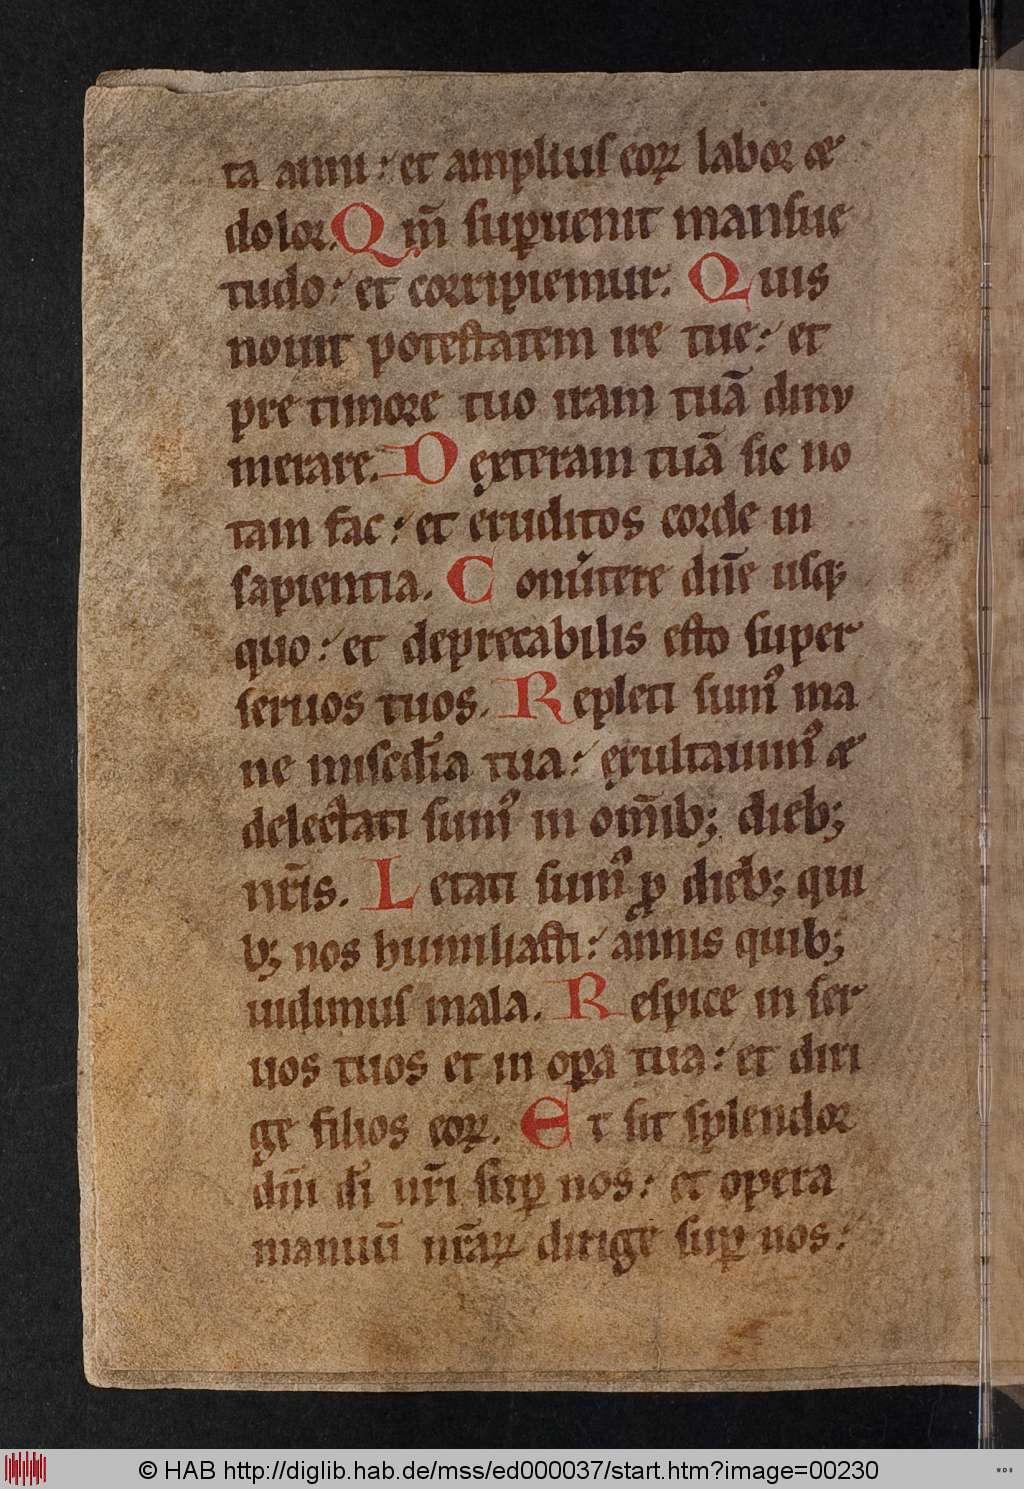 ta anni: et ampliuſ eoꝝ labor &
dolor. Qm̄ ſuꝑuenit manſue
tudo: et corripiemur. Quis
nouit poteſtatem ire tue: et
pre timore tuo iram tuā dinu
merare. Dexteram tuā ſic no
tam fac: et eruditos corde in
ſapientia. Conu̓tere dn̄e uſq;
quo: et deprecabilis eſto ſuper
ſeruos tuos. Repleti ſumꝰ ma
ne miſcd̓ia tua: ęxultauimꝰ &
delectati ſumꝰ in om̄ib; dieb;
nr̄is. Letati ſumꝰ ꝓ dieb; qui
b; nos humiliaſti: annis quib;
uidimuſ mala. Reſpice in ſer
uos tuos et in oꝑa tua: et diri
ge filios eoꝝ. Et ſit ſplendor
dn̄i di̓ nr̄i ſuꝑ nos: et opera
manuū nr̄aꝝ dirige ſuꝑ nos:
© HAB http://diglib.hab.de/mss/ed000037/start.htm?image=00230